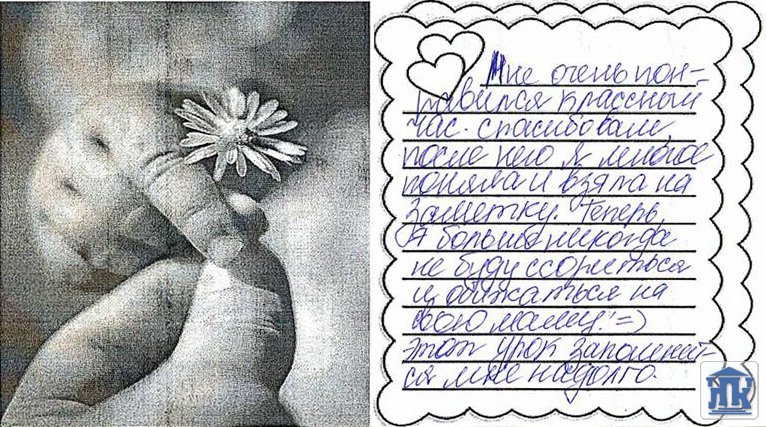 Мне очень пон-
равился классный
час. спасибо вам,
после него я многое
поняла и взяла на
заметку. Теперь,
я больше никогда
не буду ссориться
и обижаться на
свою маму! =)
этот урок запомнит-
ся мне надолго.
ПК